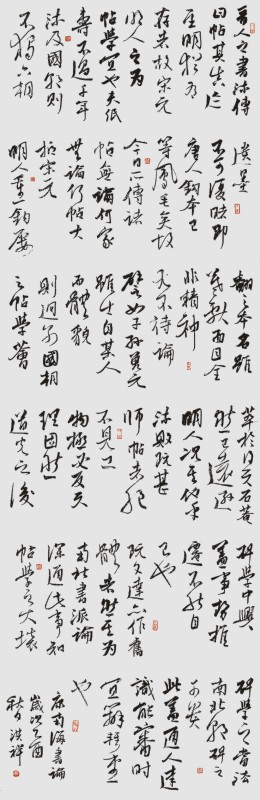 晋人之书流传
曰帖其真迹
至明犹有
存者故宋元
明人之为
帖学宜也夫纸
寿不过千年
流及国朝则
不独六朝
遗墨
不可复睹即
唐人钩本已
等凤毛矣故
今日所传诸
帖无论何家
无论何帖大
抵宋元
明人重钩屡
翻之本名虽
羲献面目全
非精神
尤不待论
譬如子孙曾元
虽出自某人
而体貌
则迥别国朝
之帖学荟
萃于得天石庵
然已远逊
明人况其他乎
流败既甚
师帖者绝
不见工
物极必反天
理固然
道光之后
碑学中兴
盖事势推
迁不能自
已也
阮文达亦作旧
体者然其为
南北书派论
深通此事知
帖学之大坏
碑学之当法
南北朝碑之
可贵
此盖通人达
识能审时
宜辨轻重
也
康南海书论
岁次乙酉
秋月洪祥